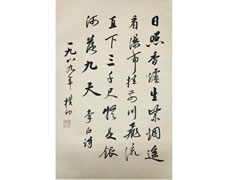 日照香爐生紫烟遥
看瀑布挂前川飛流
直下三千尺疑是銀
河落九天 李白詩
一九八九年 樸初